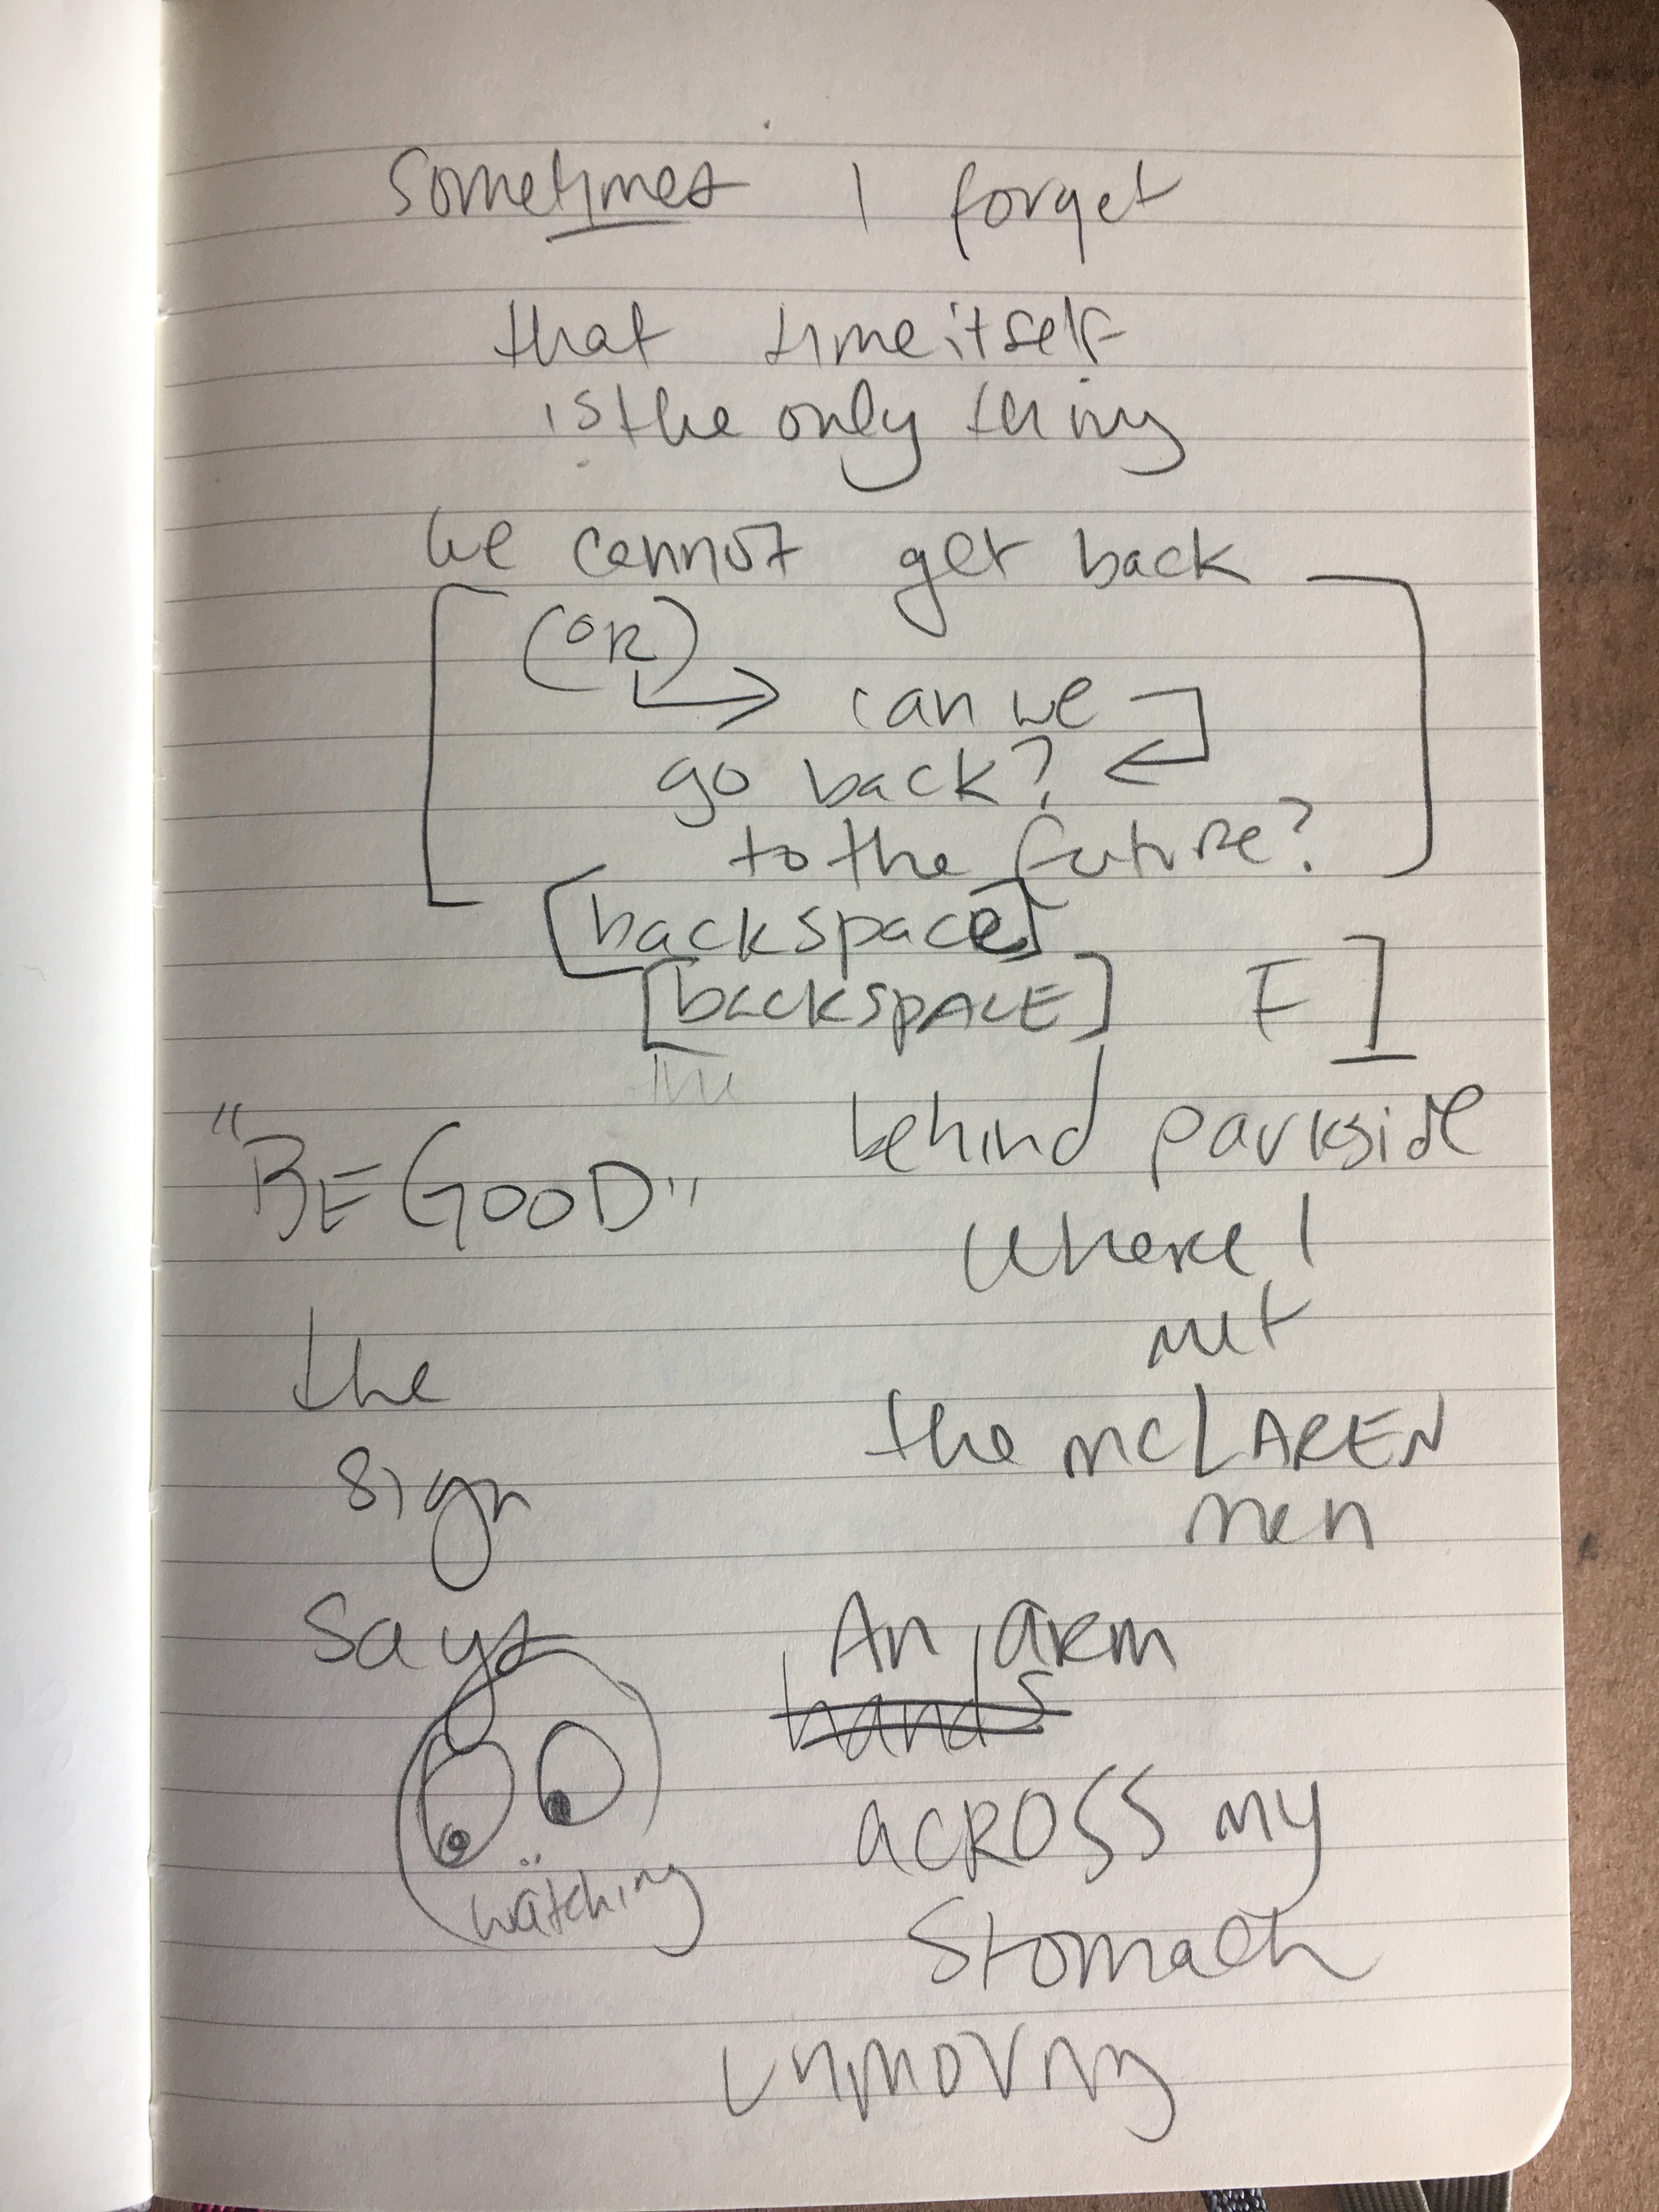 sometimes I forget
that time itself
is the only thing
we cannot get back
(OR)
can we
go back?
to the future?
[backspace]
[backspACE] F]
the
"BE GOOD"
the
sign
says
watching
behind parkside
where I
met
the mcLAREN
men
An arm
hands
across my
Stomach
unmoving